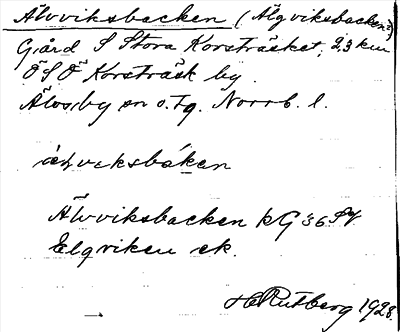 Älvviksbacken (Älgviksbacken?)
Gård S Stora Korsträsket, 2,3 km
ÖSÖ Korsträsk by.
Älvsby sn o. tg. Norrb. l.
Älvviksbacken kG 36 SV
Elgviken ek.
H Rutberg 1928.